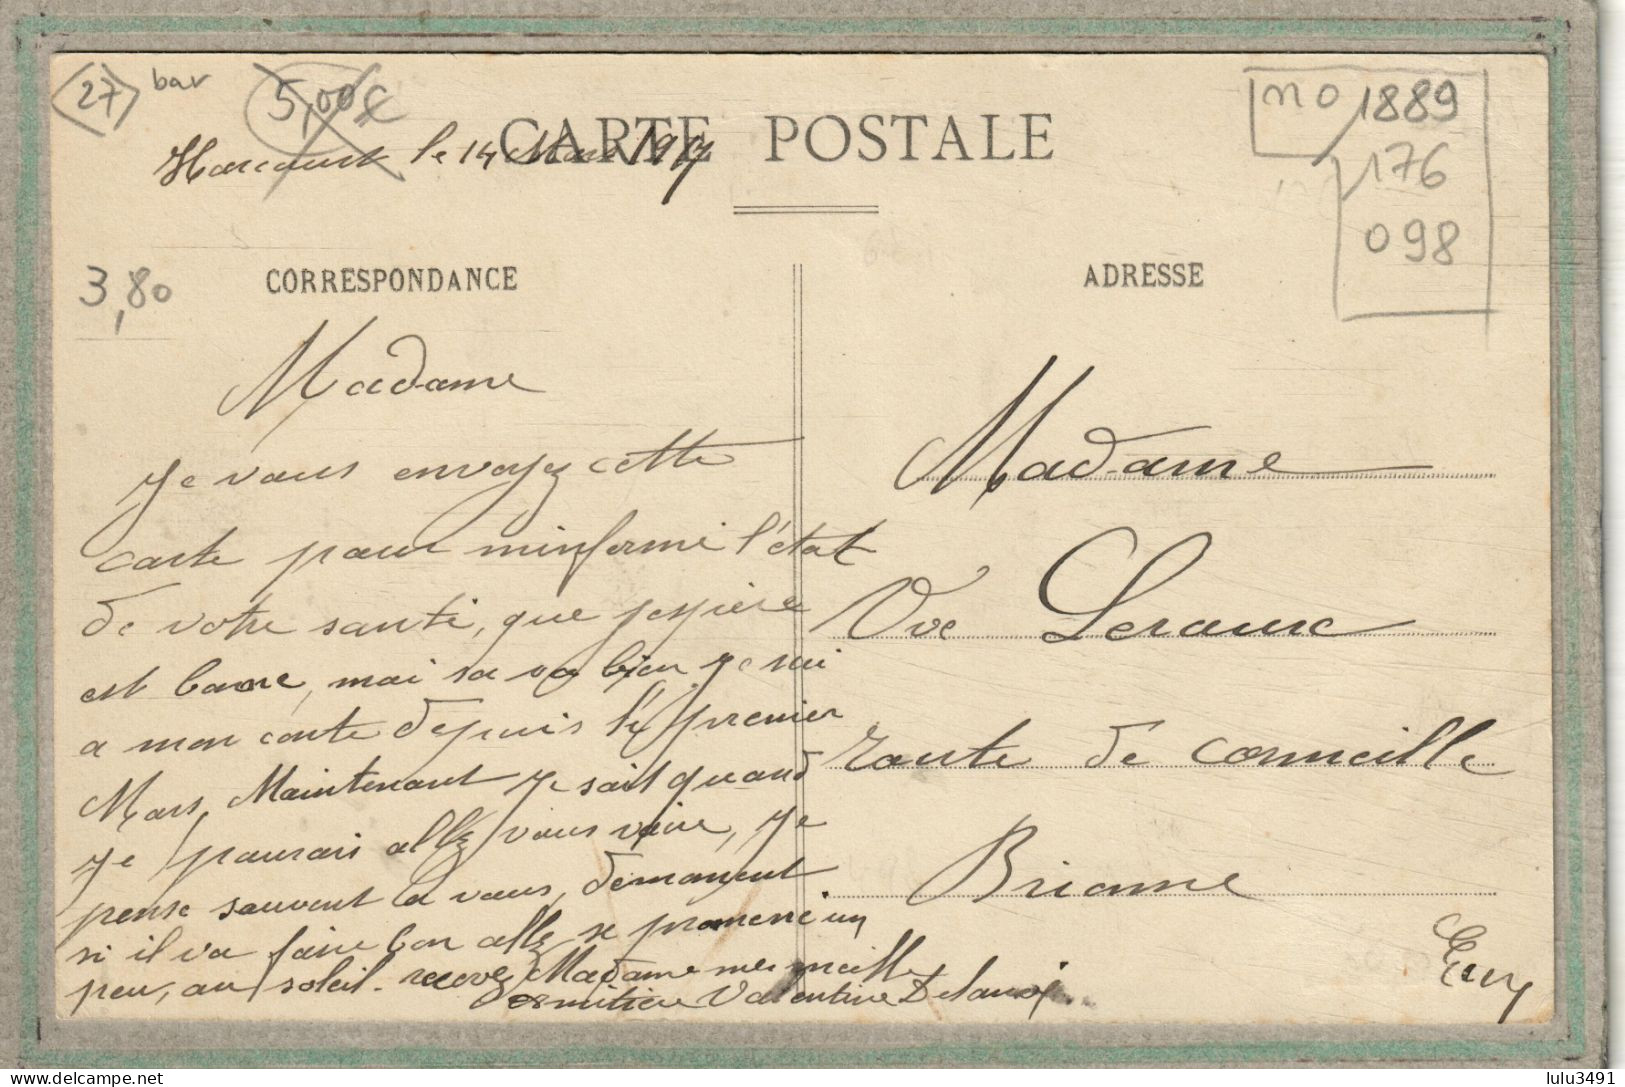 27 bar
5,00€
no 1889
176
098
CARTE POSTALE
Harcourt le 14 Mars 1917
3,80
CORRESPONDANCE
ADRESSE
Madame
je vous envoyez cette
carte pour minformé l'état
de votre santé, que j'espière
est bonne, mai sa va bien je sui
a mon conte depuis le premier
Mars, Maintenant je sait quand
je pourais allez vous voire, je
pense souvent a vous, demongeut
si il va faire bon allez se promené un
peu, au soleil. recevez Madame mes meille
Valentine Delanoi
Madame
Vve Lerouse
route de corneille
Brionne
Eure
lulu3491